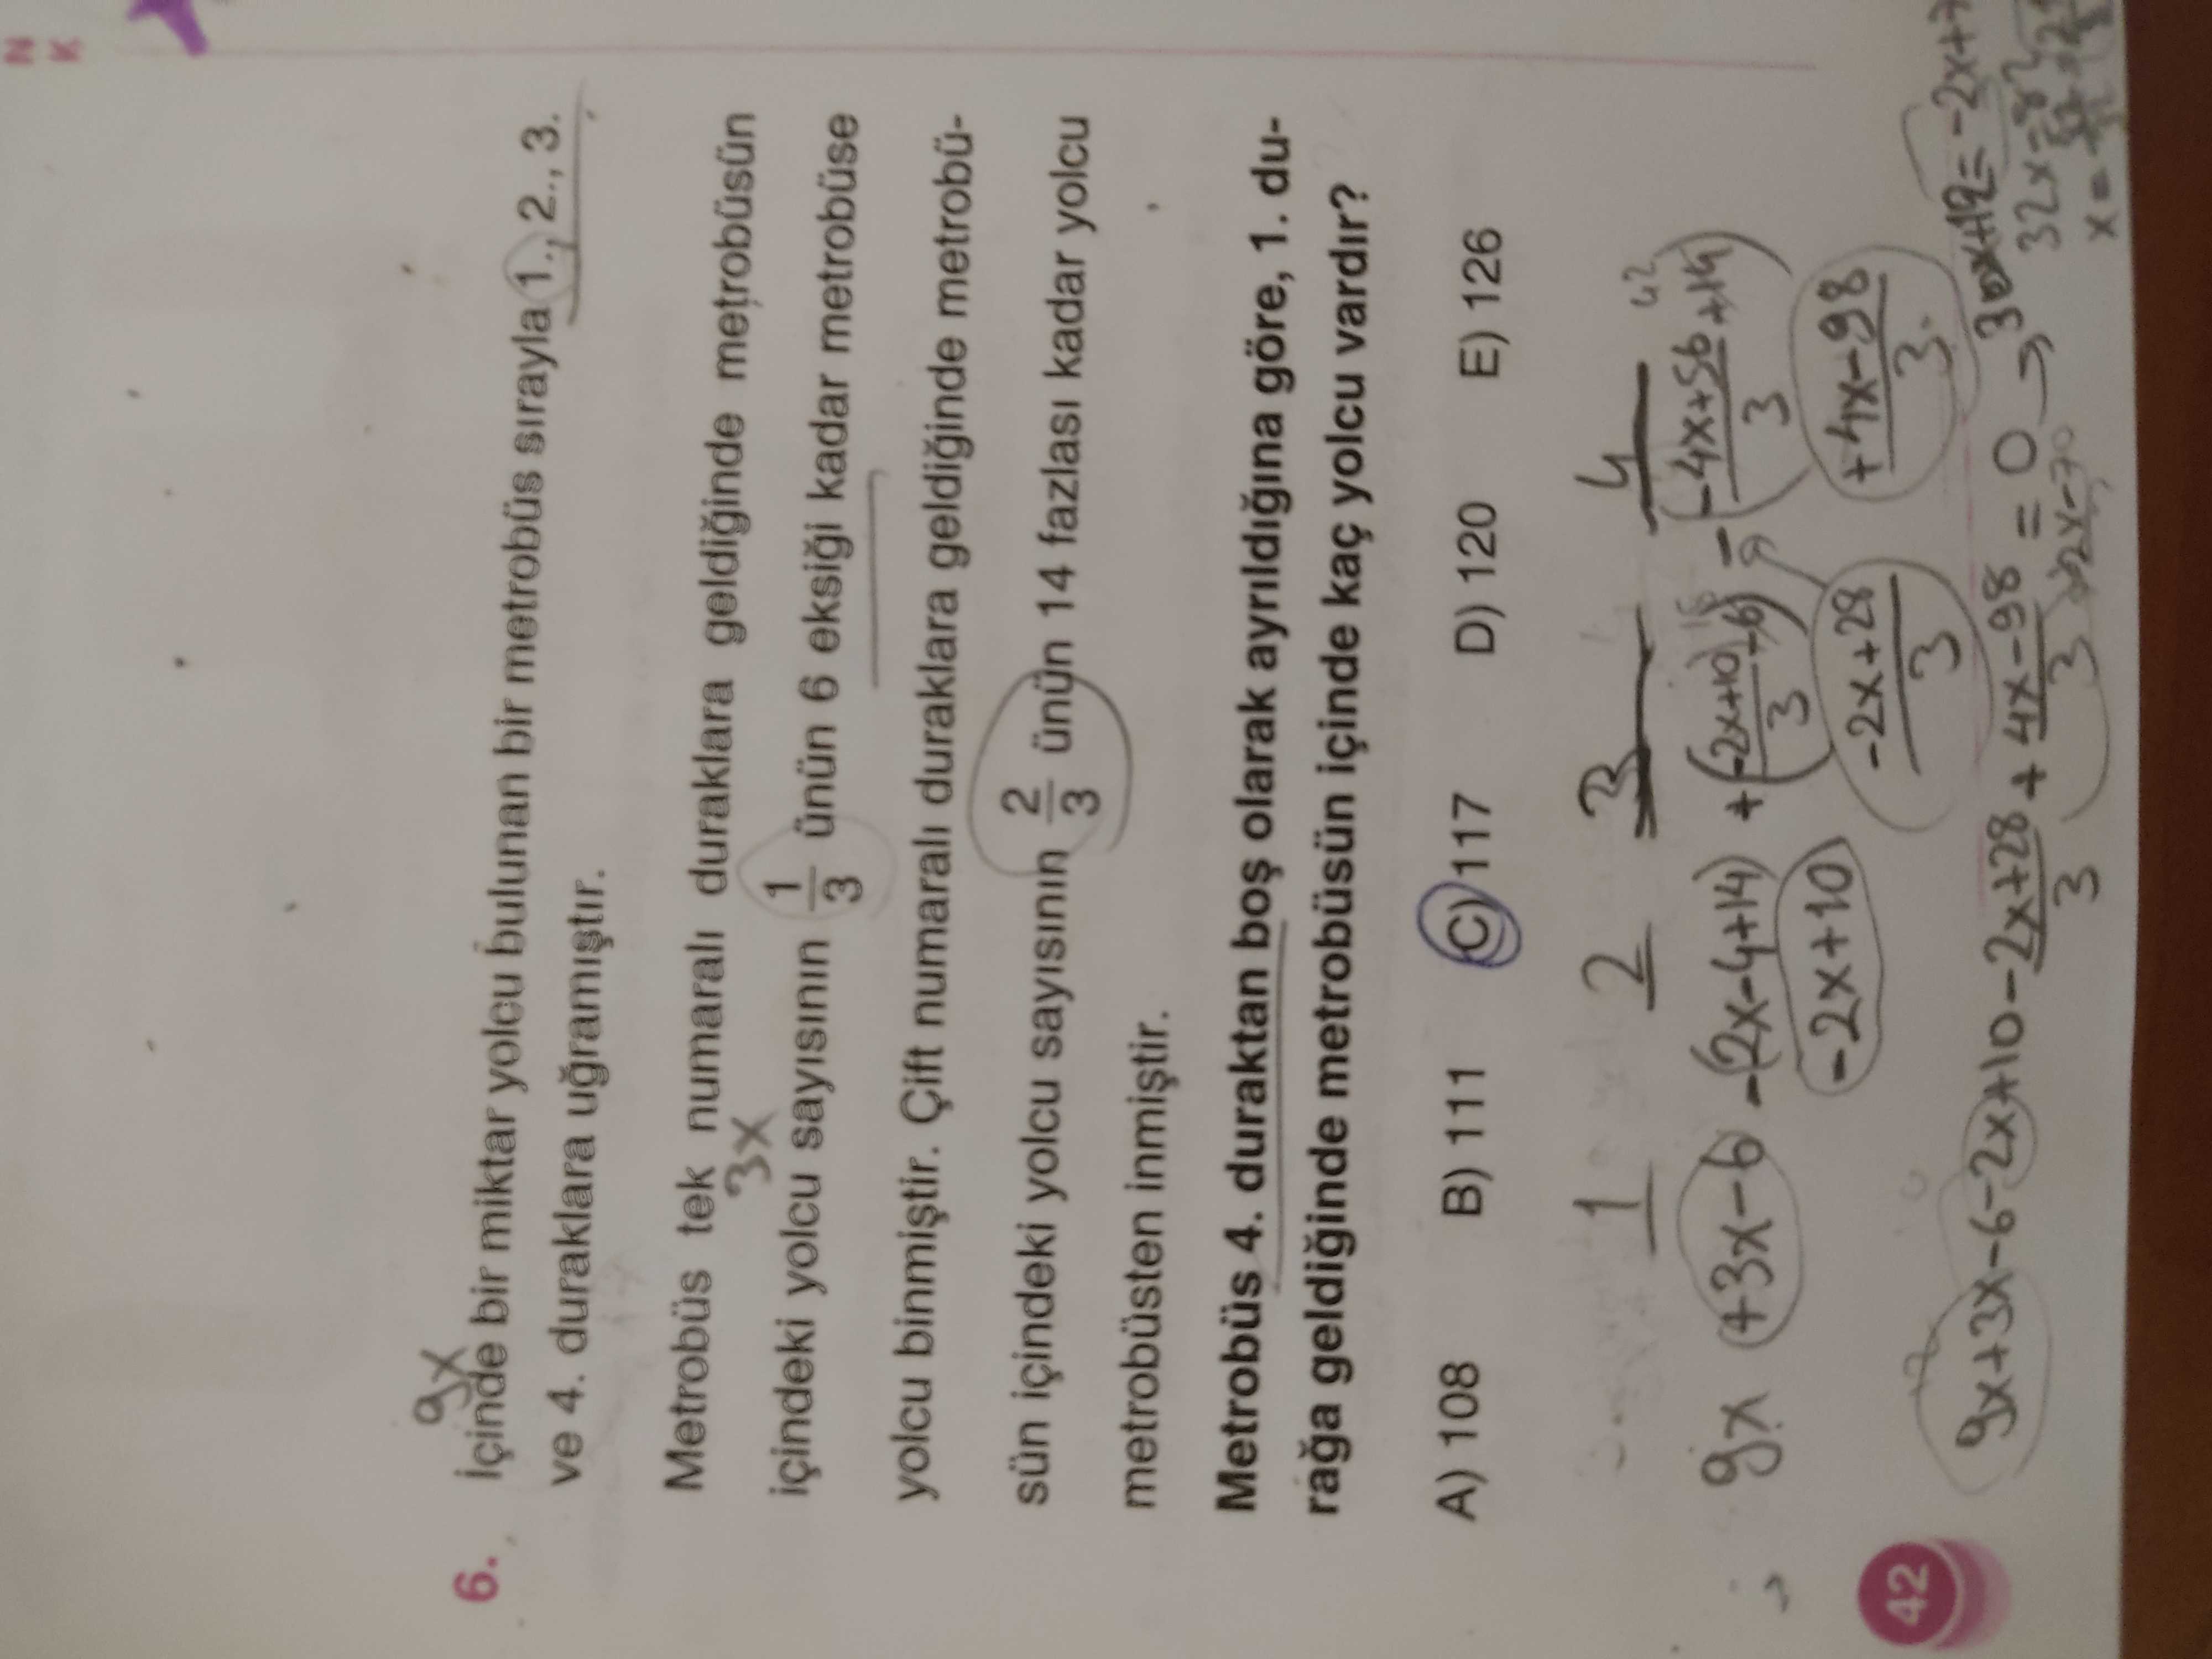 N
K
9x
6. İçinde bir miktar yolcu bulunan bir metrobüs sırayla 1., 2., 3.
ve 4. duraklara uğramıştır.
Metrobüs tek numaralı duraklara geldiğinde metrobüsün
3x
içindeki yolcu sayısının 1/3 ünün 6 eksiği kadar metrobüse
yolcu binmiştir. Çift numaralı duraklara geldiğinde metrobü-
sün içindeki yolcu sayısının 2/3 ünün 14 fazlası kadar yolcu
metrobüsten inmiştir.
Metrobüs 4. duraktan boş olarak ayrıldığına göre, 1. du-
rağa geldiğinde metrobüsün içinde kaç yolcu vardır?
A) 108 B) 111 C) 117 D) 120 E) 126
1 2 3 4
9x +3x-6 -(2x-4+14) +(-2x+10/3 +6) -(-4x+56/3 +14)
-2x+10 -2x+28/3 +4x-98/3
9x+3x-6-2x+10-2x+28/3 + 4x-98/3 = 0
42